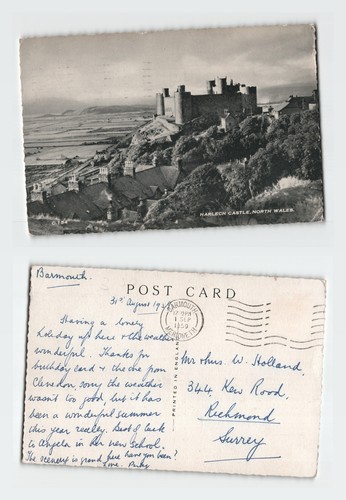 HARLECH CASTLE, NORTH WALES.
Barmouth.
POST CARD
31st August
BARMOUTH
1 SEP
1959
MERIONETH
PRINTED IN ENGLAND
Having a lovely
holiday up here & the weather
wonderful. Thanks for
birthday card & the one from
Clevedon sorry the weather
wasn't too good, but it has
been a wonderful summer
this year really. Best of luck
to Angela in her new school.
The scenery is grand here have you been?
Love.
Mr & Mrs. W. Holland,
344 Kew Road,
Richmond
Surrey